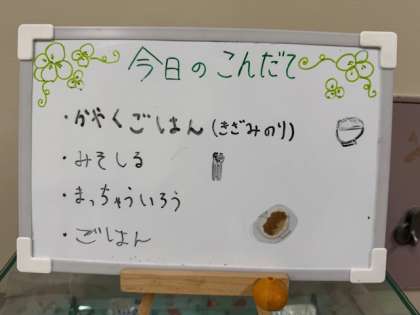 今日のこんだて
・かやくごはん(きざみのり)
・みそしる
・まっちゃういろう
・ごはん